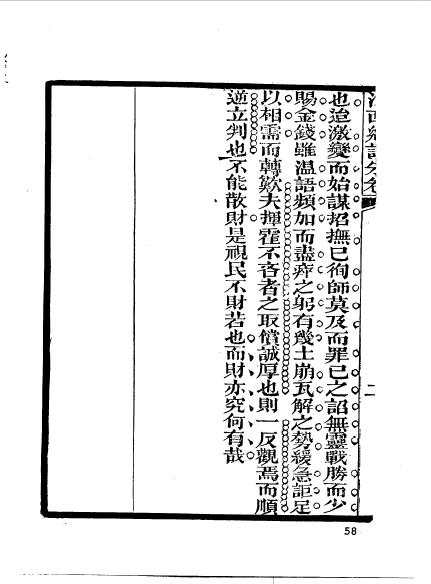 二
也迨激變而始謀招撫已徇師莫及而罪已之詔無靈戰勝而少
賜金錢雖温語頻加而盡瘁之躬有幾土崩瓦解之勢緩急詎足
以相需而轉歎夫揮霍不吝者之取償誠厚也則一反觀焉而順
逆立判也不能散財是視民不財若也而財亦究何有哉
58